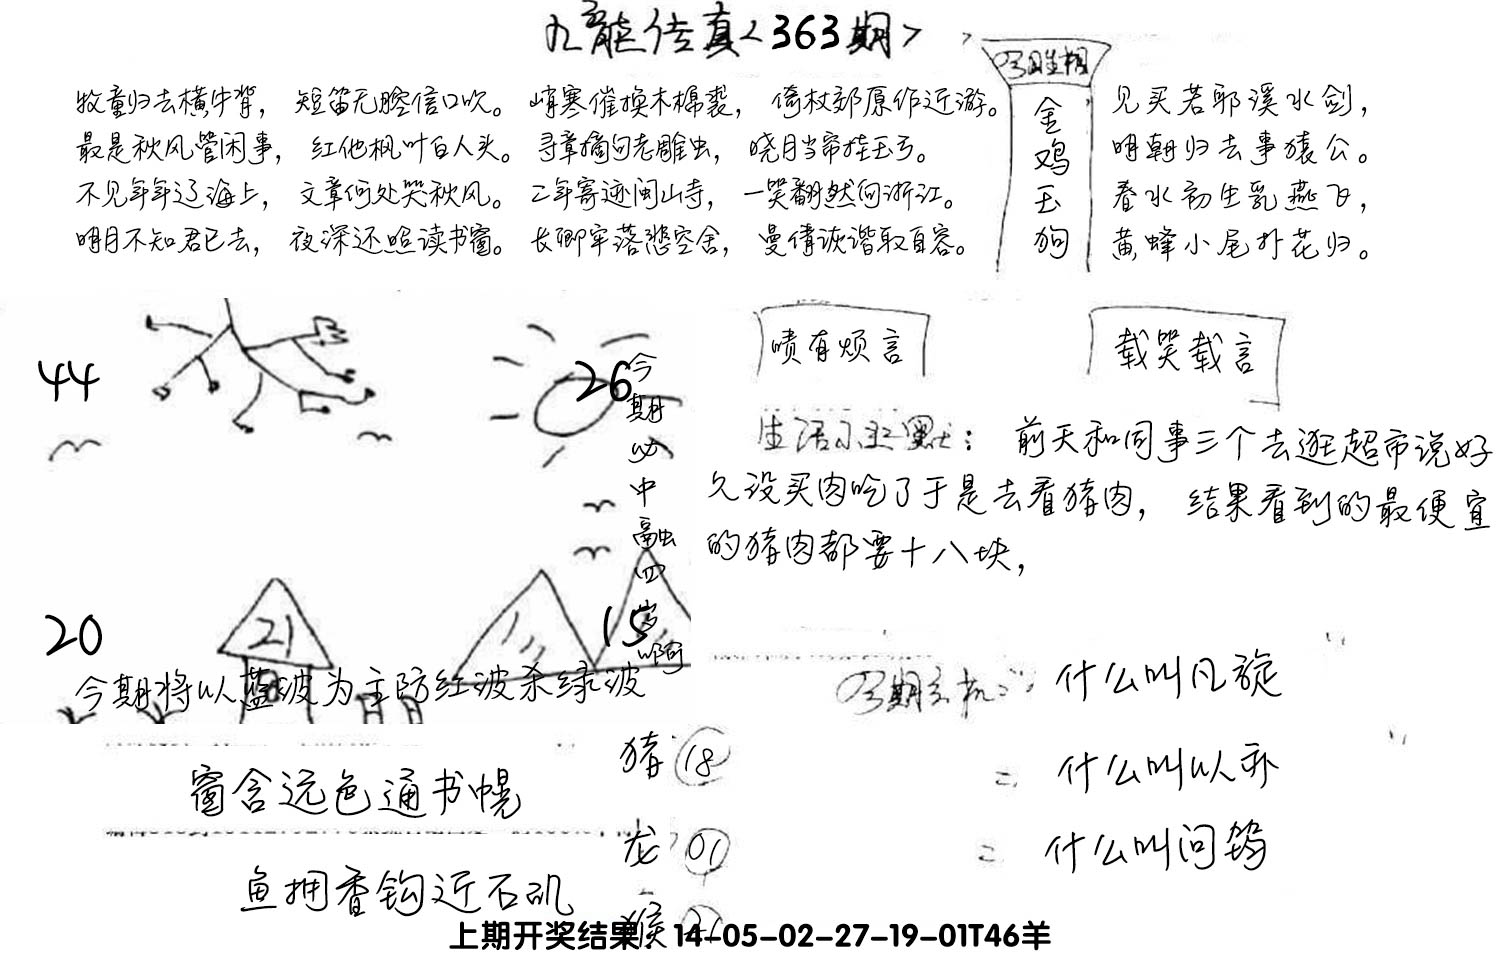 九龙传真<363期>
牧童归去横牛背，短笛无腔信口吹。峭寒催换木棉裘，倚杖郊原作近游。
最是秋风管闲事，红他枫叶白人头。寻章摘句老雕虫，晓月当帘挂玉弓。
不见年年辽海上，文章何处哭秋风。二年寄迹闽山寺，一笑翻然向浙江。
明月不知君已去，夜深还照读书窗。长卿牢落悲空舍，曼倩诙谐取自容。
金
鸡
玉
狗
见买若耶溪水剑，
明朝归去事猿公。
春水初生乳燕飞，
黄蜂小尾扑花归。
44
26
今期必中融四岁啊
20
21
15
今期将以蓝波为主防红波杀绿波
啧有烦言
载笑载言
生活小幽默：前天和同事三个去逛超市说好
久没买肉吃了于是去看猪肉，结果看到的最便宜
的猪肉都要十八块，
什么叫凡旋
什么叫以亦
什么叫问鸩
窗含远色通书幌
鱼拥香钩近石矶
猪 18
龙 01
猴 21
上期开奖结果：14-05-02-27-19-01T46羊